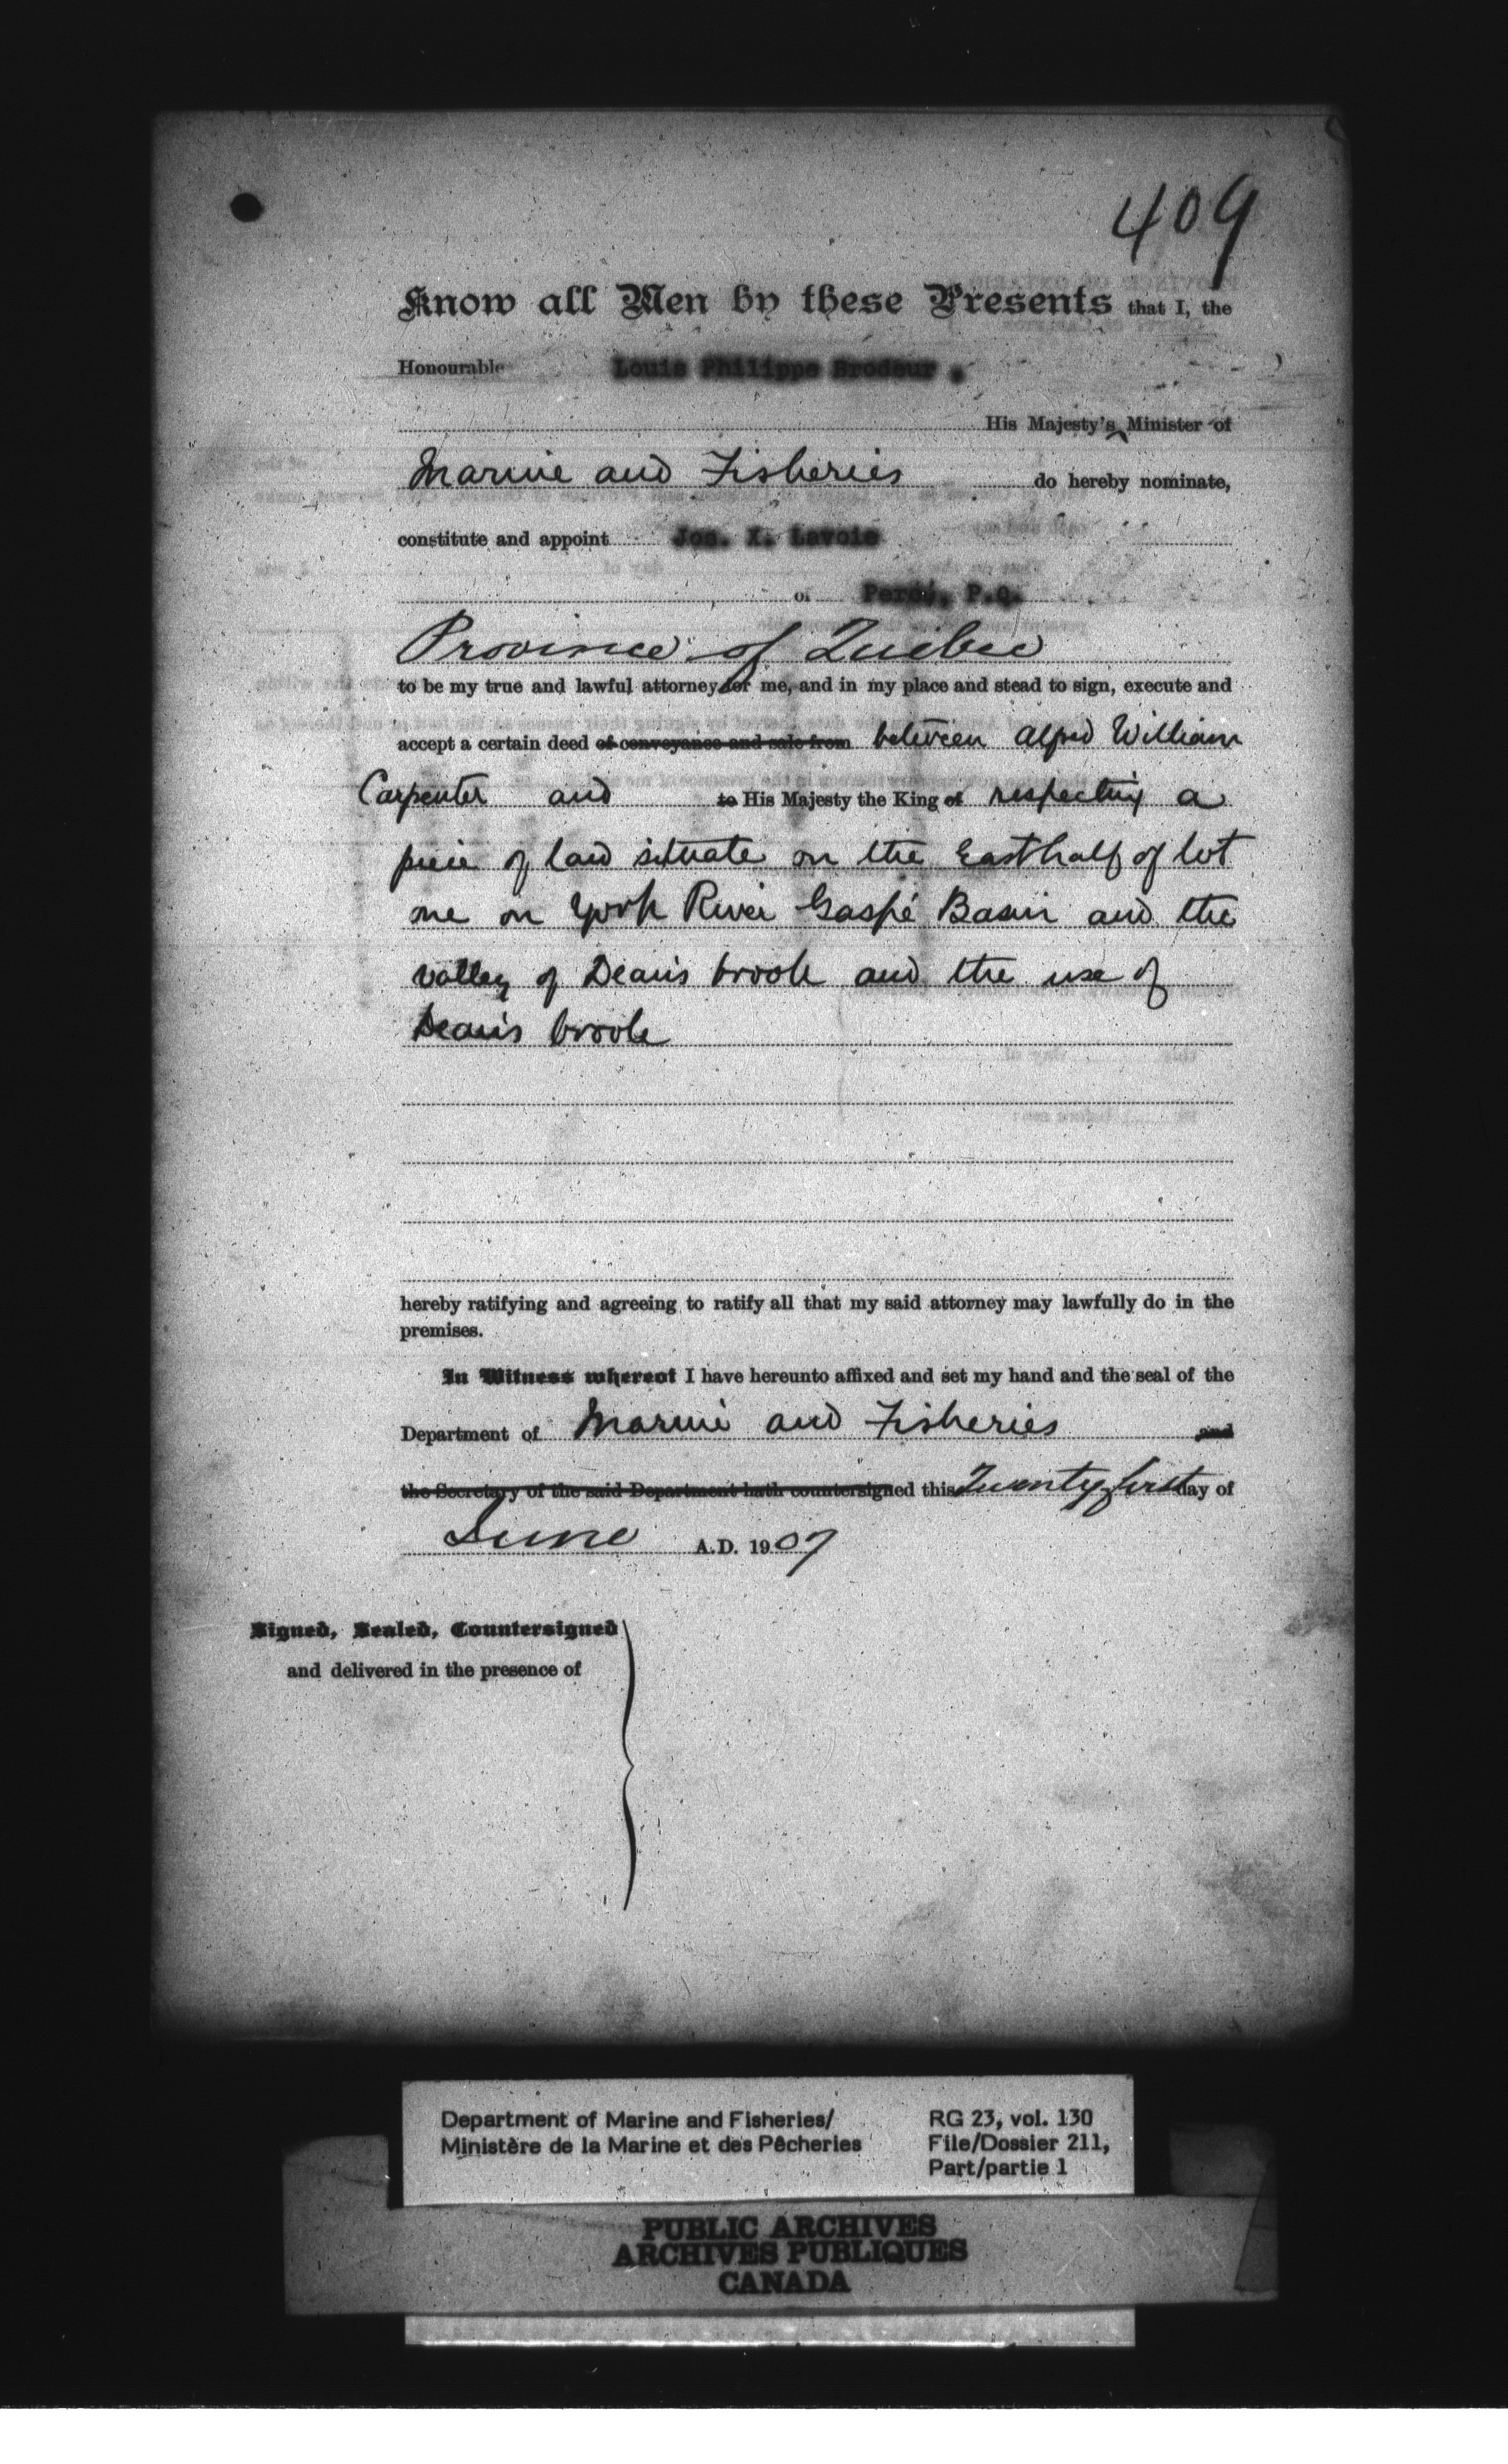 409
Know all Men by these Presents that I, the
Honourable Louis Philippe Brodeur .
His Majesty's Minister of
Marine and Fisheries do hereby nominate,
constitute and appoint Jos. X. Lavoie
of Percé, P.Q.
Province of Quebec
to be my true and lawful attorney for me, and in my place and stead to sign, execute and
accept a certain deed of conveyance and sale from between Alfred William
Carpenter and to His Majesty the King of respecting a
piece of land situate on the East half of lot
one on York River Gaspé Basin and the
valley of Dean's brook and the use of
Dean's brook
hereby ratifying and agreeing to ratify all that my said attorney may lawfully do in the
premises.
In Witness whereof I have hereunto affixed and set my hand and the seal of the
Department of Marine and Fisheries and
the Secretary of the said Department hath countersigned this Twenty first day of
June A.D. 1907
Signed, Sealed, Countersigned
and delivered in the presence of
Department of Marine and Fisheries/
Ministère de la Marine et des Pêcheries
RG 23, vol. 130
File/Dossier 211,
Part/partie 1
PUBLIC ARCHIVES
ARCHIVES PUBLIQUES
CANADA